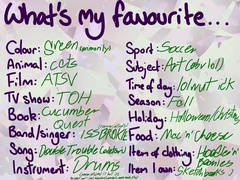 What's my favourite...
Colour: green (mommy)
Animal: cats
Film: ATSV
TV show: TOH
Book: Cucumber Quest
Band/singer: ISSBROKIE
Song: Double Trouble
Instrument: Drums
Sport: Soccer
Subject: Art
Time of day: idk
Season: Fall
Holiday: Halloween/Christmas
Food: Mac 'n' Cheese
Item of clothing: Hoodie 'n' Beanies
Item I own: Sketchbooks :)